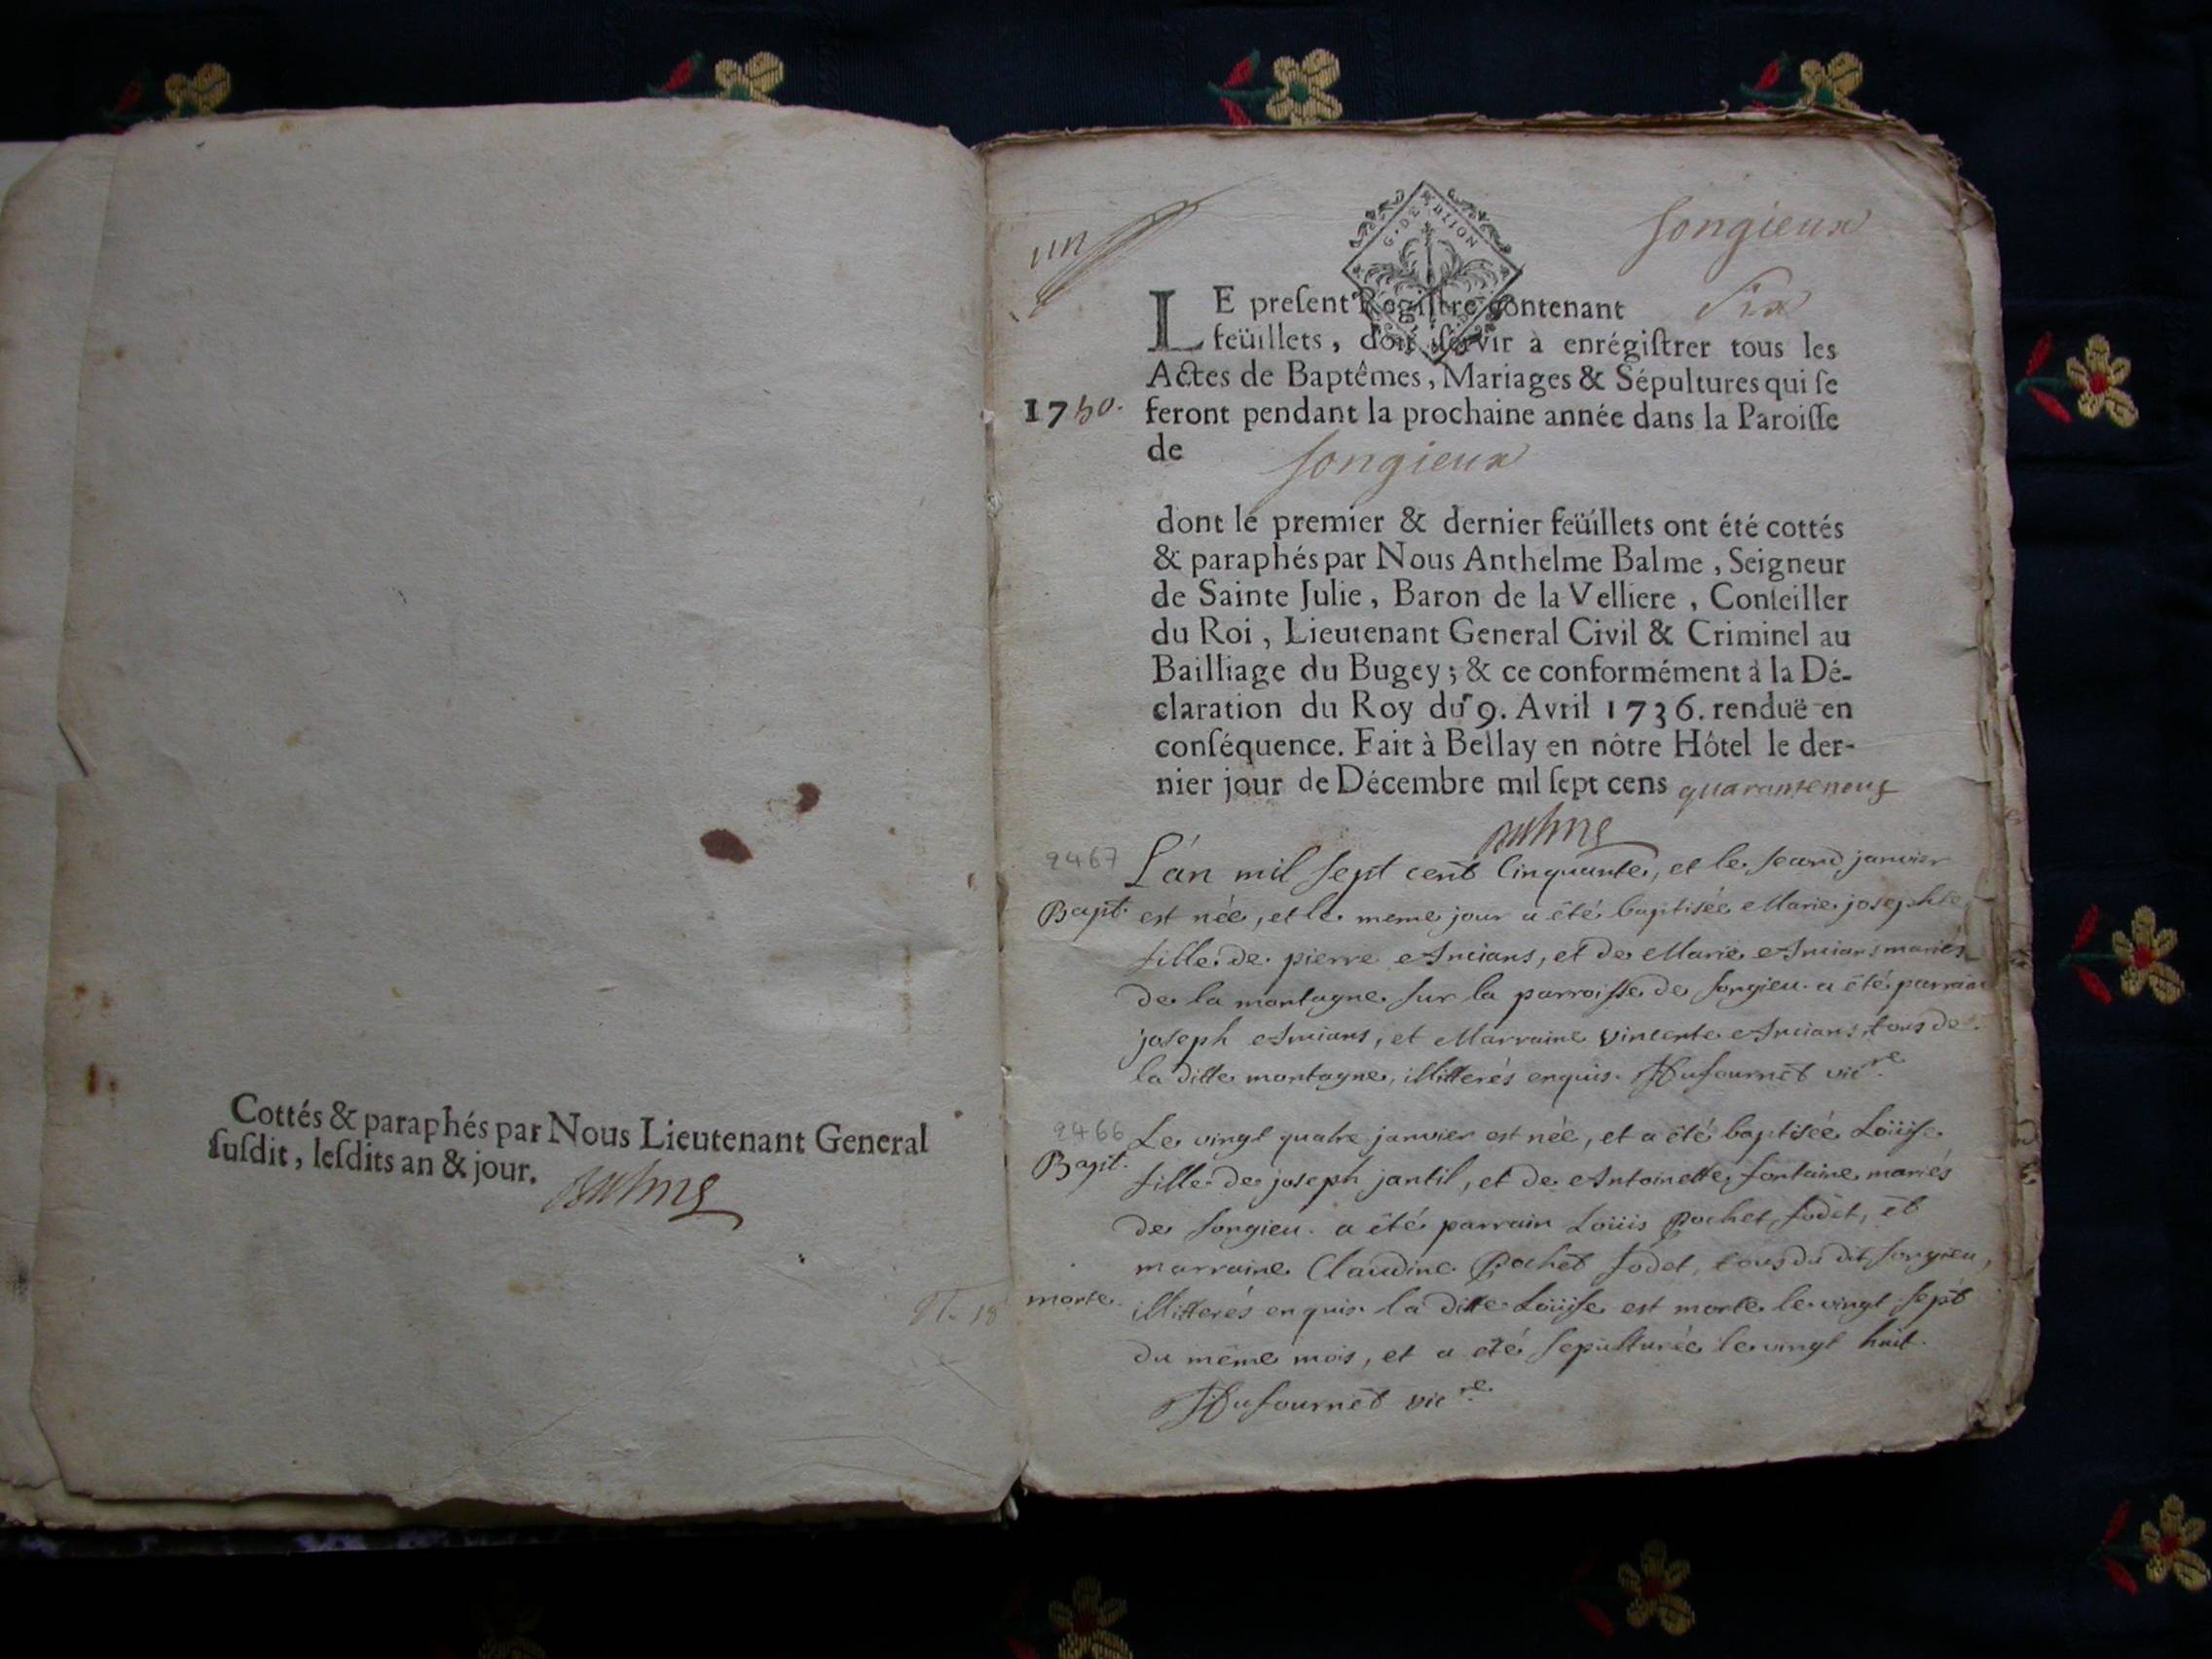 Cottés & paraphés par Nous Lieutenant General
ſuſdit, leſdits an & jour.
Balme
un
G. DE DIJON
Songieux
LE preſent Regiſtre contenant Six
feüillets, doit ſervir à enrégiſtrer tous les
Actes de Baptêmes, Mariages & Sépultures qui ſe
1750. feront pendant la prochaine année dans la Paroiſſe
de Songieux
dont le premier & dernier feüillets ont été cottés
& paraphés par Nous Anthelme Balme, Seigneur
de Sainte Julie, Baron de la Velliere, Conſeiller
du Roi, Lieutenant General Civil & Criminel au
Bailliage du Bugey; & ce conformément à la Dé-
claration du Roy du 9. Avril 1736. renduë en
conſéquence. Fait à Bellay en nôtre Hôtel le der-
nier jour de Décembre mil ſept cens quarante neuf
Balme
2467 L'an mil sept cent Cinquante, et le second janvier
Bapt. est née, et le meme jour a été baptisée Marie josephte
fille de pierre Ancians, et de Marie Ancians mariés
de la montagne sur la parroisse de songieu. a été parrain
joseph Ancians, et Marraine Vincente Ancians, tous de
la ditte montagne, illitterés enquis. Dufournet vic.re
2466 Le vingt quatre janvier est née, et a été baptisée Loüise
Bapt. fille de joseph jantil, et de Antoinette fontaine mariés
de songieu. a été parrain Loüis Pochet fodet, et
marraine Claudine Pochet fodet, tous du dit songieu,
morte. illitterés enquis. la ditte Loüise est morte le vingt sept
du même mois, et a été sepulturée le vingt huit.
Dufournet vic.re